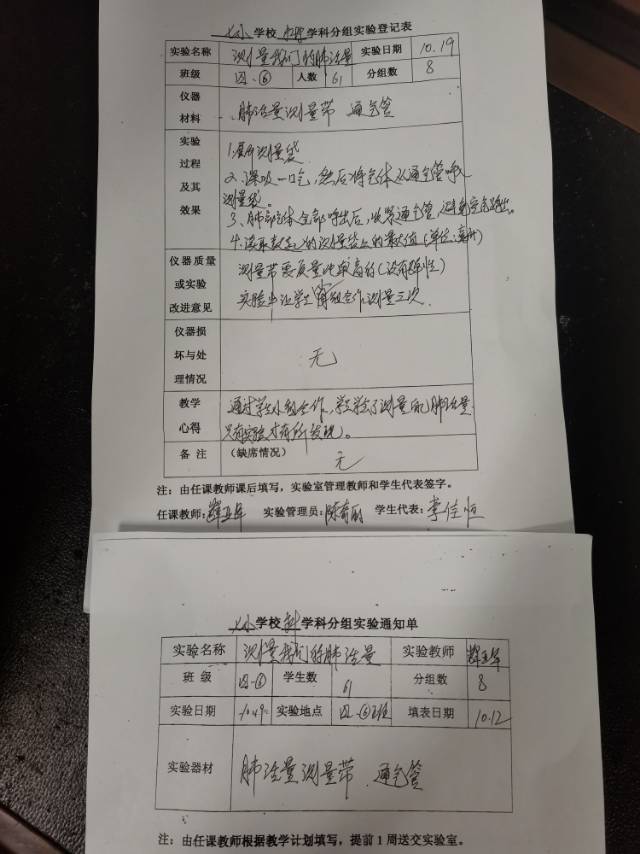 七小学校科学学科分组实验登记表
实验名称 测量我们的肺活量 实验日期 10.19
班级 四.⑥ 人数 61 分组数 8
仪器材料 肺活量测量带 通气管
实验过程及其效果 1.展开测量袋
2、深吸一口气,然后将气体从通气管呼入
测量袋。
3、肺部气体全部呼出后,收紧通气管,避免空气跑出。
4.读取刻度的测量袋上的最大值(单位:毫升)
仪器质量或实验改进意见 测量带要质量比较高的(没有弹性)
实验中让学生 合作测量三次.
仪器损坏与处理情况 无
教学心得 通过学生小组合作,学生学会了测量自己肺活量
只有实验才有所发现。
备注 (缺席情况) 无
注:由任课教师课后填写,实验室管理教师和学生代表签字。
任课教师: 实验管理员: 学生代表:李佳恒
七小学校科学学科分组实验通知单
实验名称 测量我们的肺活量 实验教师
班级 四.⑥ 学生数 61 分组数 8
实验日期 10.19 实验地点 四.⑥班 填表日期 10.12
实验器材 肺活量测量带 通气管
注:由任课教师根据教学计划填写,提前1周送交实验室。